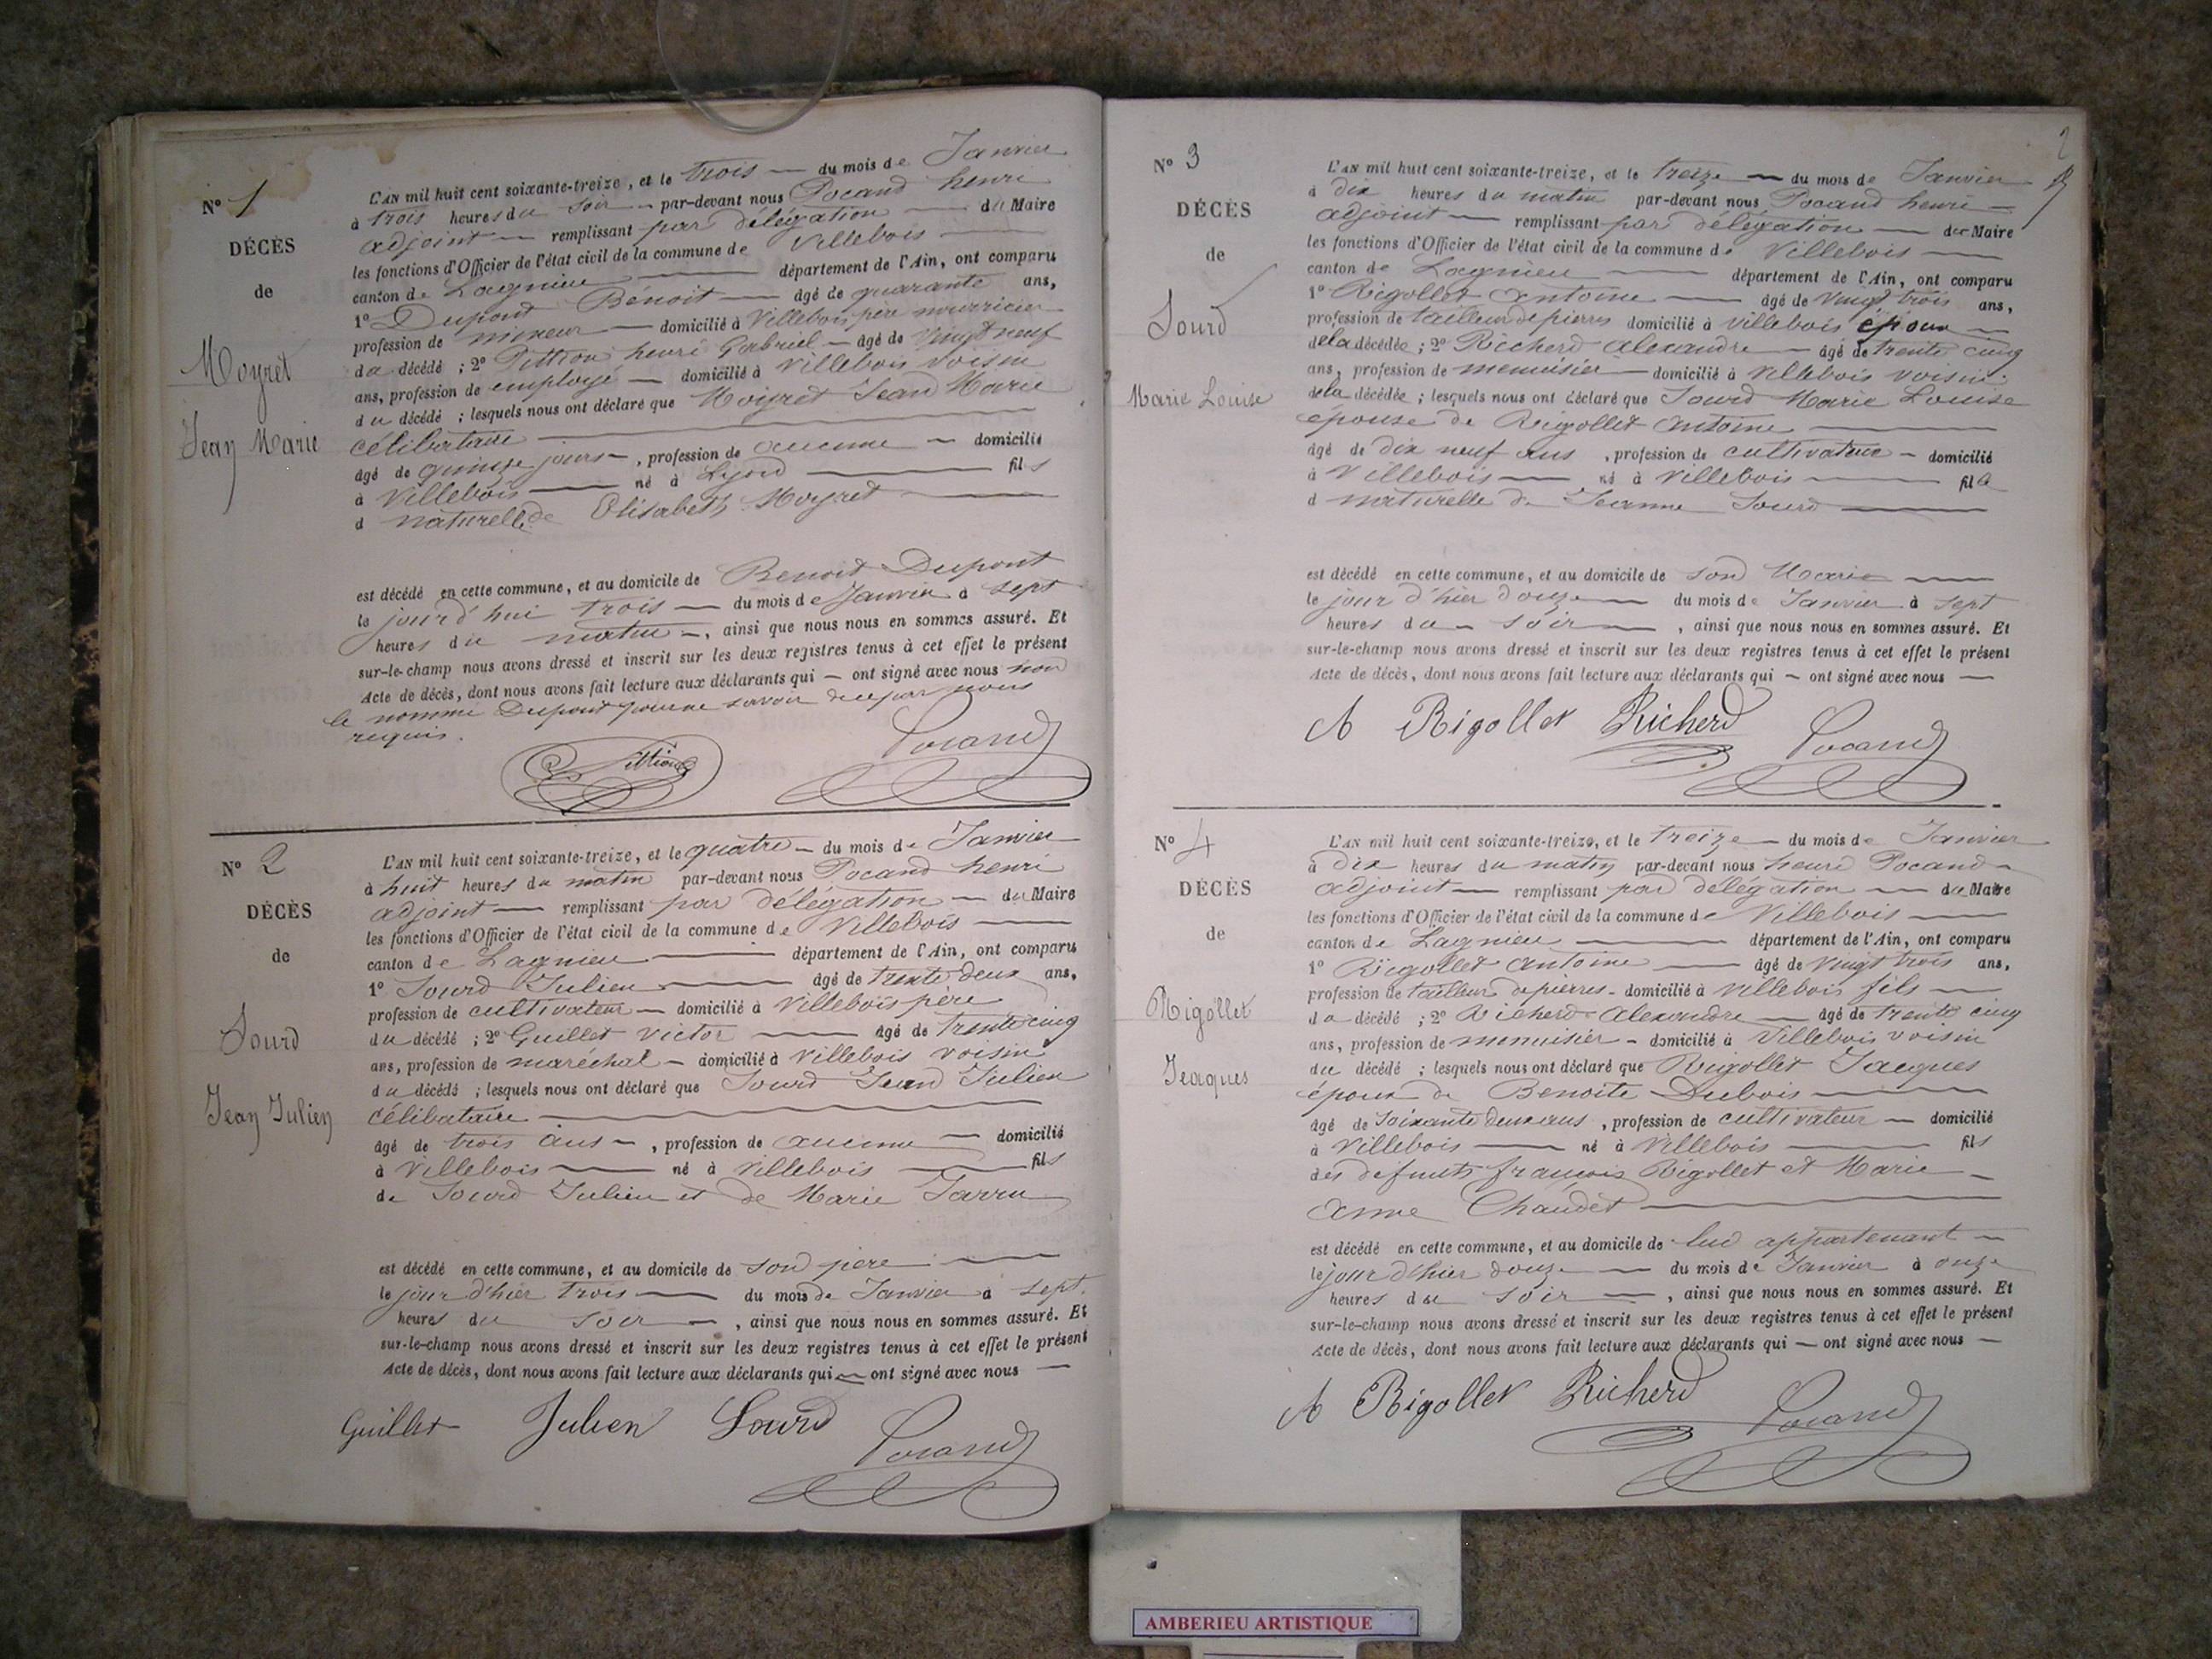 N° 1
DÉCÈS
de
Moyret
Jean Marie
L'AN mil huit cent soixante-treize, et le trois du mois de Janvier
à trois heures du soir par-devant nous Pocand henri
adjoint remplissant par délégation du Maire
les fonctions d'Officier de l'état civil de la commune de Villebois
canton de Lagnieu département de l'Ain, ont comparu
1° Dupont Bénoit âgé de quarante ans,
profession de mineur domicilié à Villebois père nourricier
du décédé ; 2° Pittion henri Gabriel âgé de vingt neuf
ans, profession de employé domicilié à Villebois voisin
du décédé ; lesquels nous ont déclaré que Moyret Jean Marie
célibataire
âgé de quinze jours, profession de aucune domicilié
à Villebois né à Lyon fils
d naturelle de Elisabeth Moyret
est décédé en cette commune, et au domicile de Benoit Dupont
le jourd'hui trois du mois de Janvier à sept
heures du matin, ainsi que nous nous en sommes assuré. Et
sur-le-champ nous avons dressé et inscrit sur les deux registres tenus à cet effet le présent
Acte de décès, dont nous avons fait lecture aux déclarants qui ont signé avec nous non
le nommé Dupont pour ne savoir de ce par nous
requis.
Pittion Pocand
N° 2
DÉCÈS
de
Sourd
Jean Julien
L'AN mil huit cent soixante-treize, et le quatre du mois de Janvier
à huit heures du matin par-devant nous Pocand henri
adjoint remplissant par délégation du Maire
les fonctions d'Officier de l'état civil de la commune de Villebois
canton de Lagnieu département de l'Ain, ont comparu
1° Sourd Julien âgé de trente deux ans,
profession de cultivateur domicilié à Villebois père
du décédé ; 2° Guillet Victor âgé de trente cinq
ans, profession de maréchal domicilié à Villebois voisin
du décédé ; lesquels nous ont déclaré que Sourd Jean Julien
célibataire
âgé de trois ans, profession de aucune domicilié
à Villebois né à Villebois fils
de Sourd Julien et de Marie Jarru
est décédé en cette commune, et au domicile de son père
le jour d'hier trois du mois de Janvier à sept
heures du soir, ainsi que nous nous en sommes assuré. Et
sur-le-champ nous avons dressé et inscrit sur les deux registres tenus à cet effet le présent
Acte de décès, dont nous avons fait lecture aux déclarants qui ont signé avec nous
Guillet Julien Sourd Pocand
2
N° 3
DÉCÈS
de
Sourd
Marie Louise
L'AN mil huit cent soixante-treize, et le treize du mois de Janvier
à dix heures du matin par-devant nous Pocand henri
adjoint remplissant par délégation du Maire
les fonctions d'Officier de l'état civil de la commune de Villebois
canton de Lagnieu département de l'Ain, ont comparu
1° Rigollet Antoine âgé de vingt trois ans,
profession de tailleur de pierres domicilié à Villebois époux
de la décédée ; 2° Richerd Alexandre âgé de trente cinq
ans, profession de menuisier domicilié à Villebois voisin
de la décédée ; lesquels nous ont déclaré que Sourd Marie Louise
épouse de Rigollet Antoine
âgé de dix neuf ans, profession de cultivateur domicilié
à Villebois né à Villebois fille
d naturelle de Jeanne Sourd
est décédé en cette commune, et au domicile de son Marie
le jour d'hier douze du mois de Janvier à sept
heures du soir, ainsi que nous nous en sommes assuré. Et
sur-le-champ nous avons dressé et inscrit sur les deux registres tenus à cet effet le présent
Acte de décès, dont nous avons fait lecture aux déclarants qui ont signé avec nous
A Rigollet Richerd Pocand
N° 4
DÉCÈS
de
Rigollet
Jeaques
L'AN mil huit cent soixante-treize, et le treize du mois de Janvier
à dix heures du matin par-devant nous henri Pocand
adjoint remplissant par délégation du Maire
les fonctions d'Officier de l'état civil de la commune de Villebois
canton de Lagnieu département de l'Ain, ont comparu
1° Rigollet Antoine âgé de vingt trois ans,
profession de tailleur de pierres domicilié à Villebois fils
du décédé ; 2° Richerd Alexandre âgé de trente cinq
ans, profession de menuisier domicilié à Villebois voisin
du décédé ; lesquels nous ont déclaré que Rigollet Jacques
époux de Benoite Dubois
âgé de soixante deux ans, profession de cultivateur domicilié
à Villebois né à Villebois fils
des defunts françois Rigollet et Marie
Anne Chaudet
est décédé en cette commune, et au domicile de lui appartenant
le jour d'hier douze du mois de Janvier à onze
heures du soir, ainsi que nous nous en sommes assuré. Et
sur-le-champ nous avons dressé et inscrit sur les deux registres tenus à cet effet le présent
Acte de décès, dont nous avons fait lecture aux déclarants qui ont signé avec nous
A Rigollet Richerd Pocand
AMBERIEU ARTISTIQUE